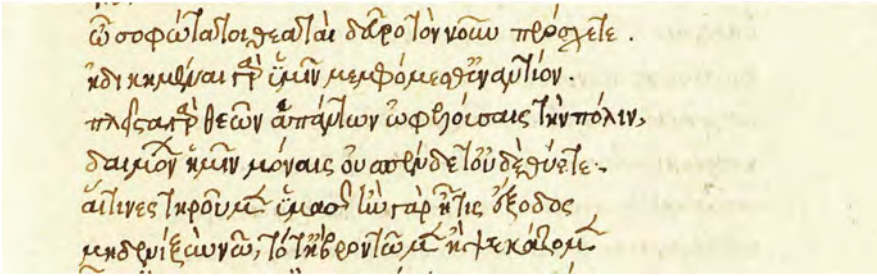 ὦ σοφώτατοι θεαταὶ δεῦρο τὸν νοῦν πρόσχετε.
ἠδικημέναι γὰρ ὑμῖν μεμφόμεσθ' ἐναντίον.
πλεῖστα γὰρ θεῶν ἁπάντων ὠφελούσαις τὴν πόλιν,
δαιμόνων ἡμῖν μόναις οὐ σπένδετ' οὐδὲ θύετε.
αἵτινες τηροῦμεν ὑμᾶς· ἢν γὰρ ᾖ τις ἔξοδος
μηδενὶ ξὺν νῶ, τότ' ἢ βροντῶμεν ἢ ψεκάζομεν